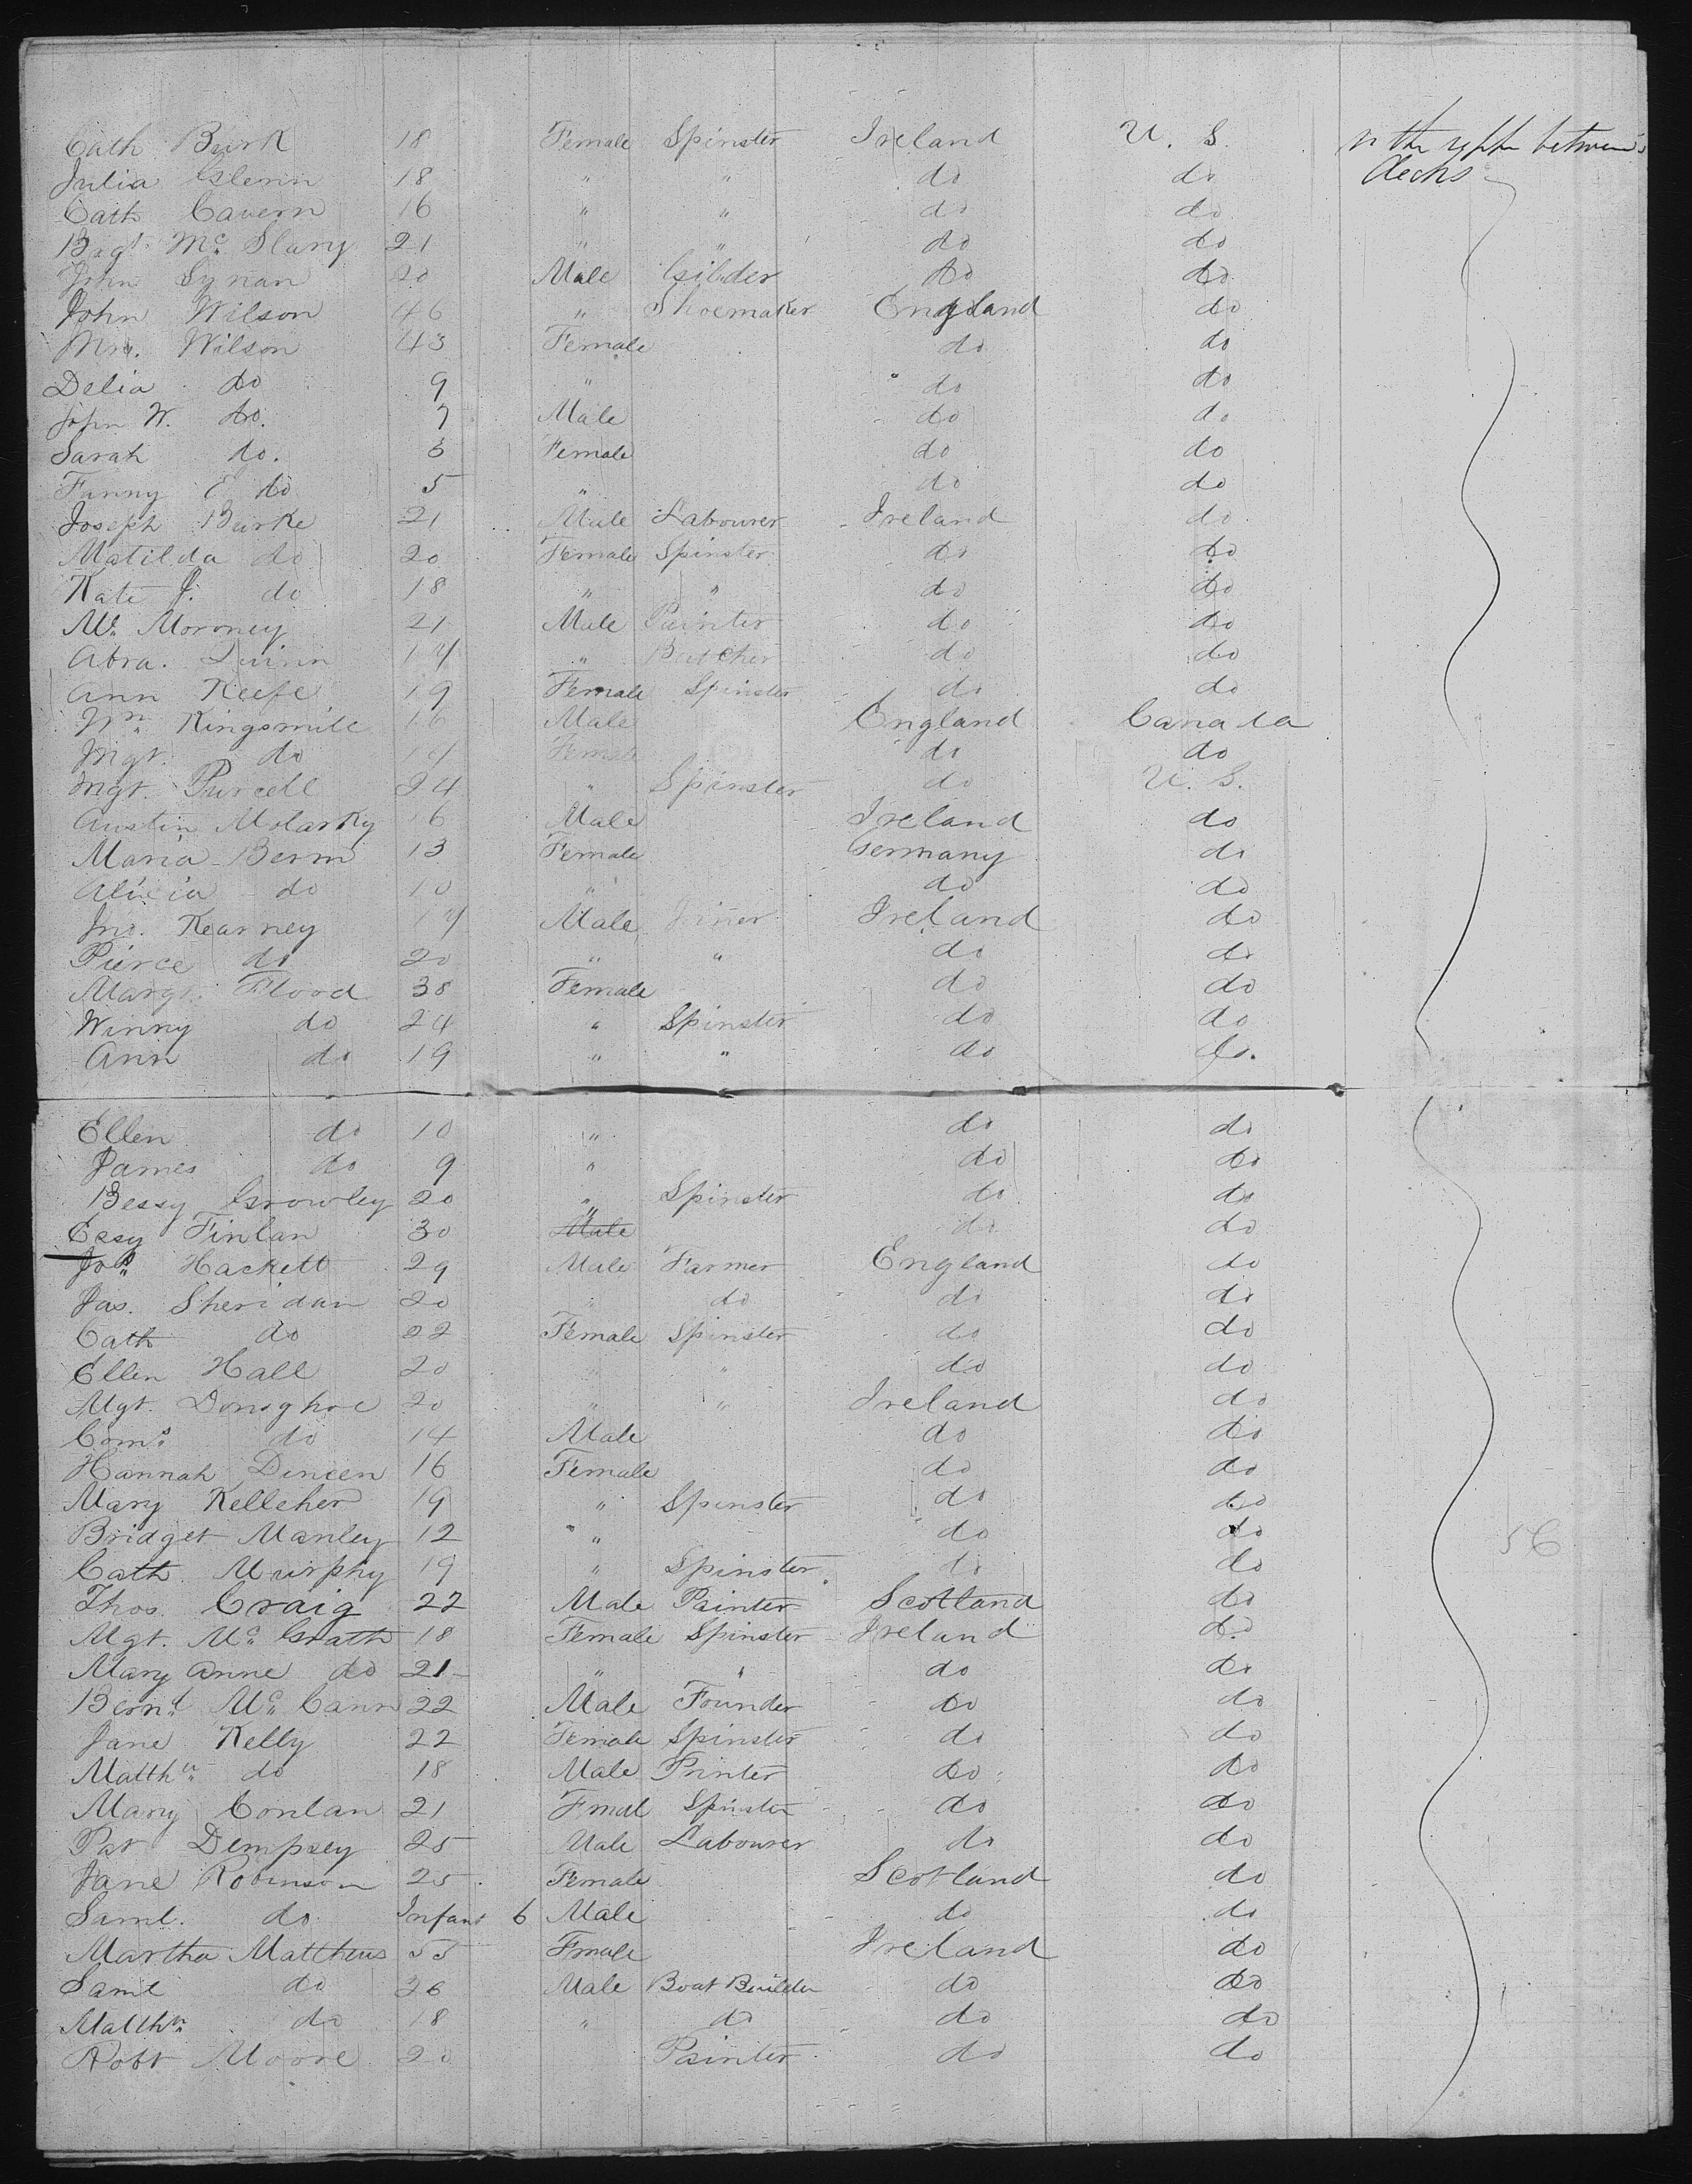 Cath Burk 18 Female Spinster Ireland U. S. in the upper between
decks
Julia Glenn 18 " " do do
Cath Cavern 16 " " do do
Brgt. Mc. Slany 21 " " do do
John Synan 20 Male Gilder do do
John Wilson 46 " Shoemaker England do
Mrs. Wilson 43 Female do do
Delia do 9 " do do
John W. do. 7 Male do do
Sarah do. 3 Female do do
Fanny E do 5 " do do
Joseph Burke 21 Male Labourer Ireland do
Matilda do 20 Female Spinster do do
Kate J. do 18 " " do do
Moroney 21 Male Painter do do
Abra. Quinn " Butcher do do
Ann Keefe 19 Female Spinster do do
Wm. Kingsmill 16 Male England Canada
Mgt. do Female do do
Mgt. Purcell 24 " Spinster do U. S.
Austin Molarky 16 Male Ireland do
Maria Berm 13 Female Germany do
Alicia do 10 " do do
Jno. Kearney Male Joiner Ireland do
Pierce do 20 " " do do
Margt. Flood 38 Female do do
Winny do 24 " Spinster do do
Ann do 19 " " do do.
Ellen do 10 " do do
James do 9 " do do
Bessy Crowley 20 " Spinster do do
Essy Finlan 30 " Male do do
Jos. Hackett 29 Male Farmer England do
Jas. Sheridan 20 " do do do
Cath do 22 Female Spinster do do
Ellen Hall 20 " " do do
Mgt. Donoghoe 20 " " Ireland do
Corns. do 14 Male do do
Hannah Dineen 16 Female do do
Mary Kelleher 19 " Spinster do do
Bridget Manley 12 " do do
Cath Murphy 19 " Spinster do do
Thos. Craig 22 Male Painter Scotland do
Mgt. Mc. Grath 18 Female Spinster Ireland do
Mary Anne do 21 " " do do
Bernd. Mc. Cann 22 Male Founder do do
Jane Kelly 22 Female Spinster do do
Matthw. do 18 Male Printer do do
Mary Conlan 21 Fmal Spinster do do
Pat Dempsey 25 Male Labourer do do
Jane Robinson 25 Female Scotland do
Saml. do Infant 6 Male do do
Martha Matthews 55 Fmale Ireland do
Saml do 26 Male Boat Builder do do
Matthw. do 18 " do do do
Robt Moore 20 Painter do do